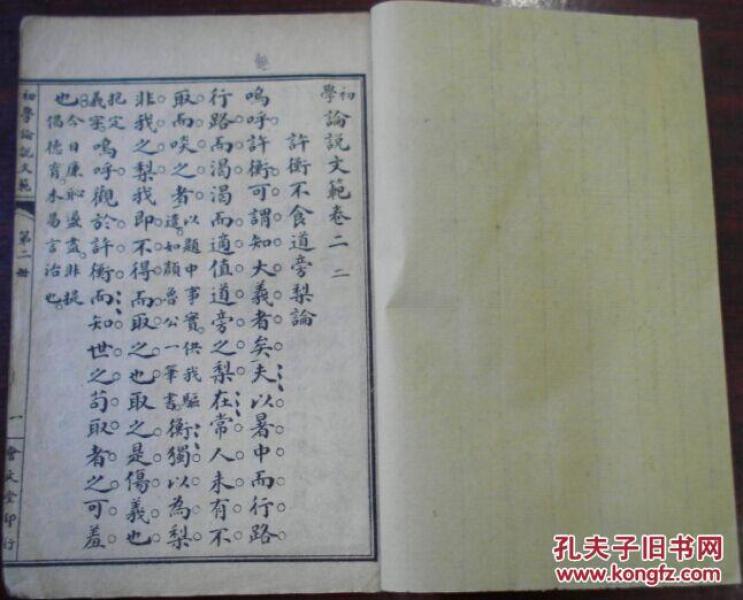 初學論說文範卷二 二
許衡不食道旁梨論
嗚呼許衡可謂知大義者矣夫以暑中而行路
行路而渴渴而適值道旁之梨在常人未有不
取而啖之者以題中事實供我驅遣如顏魯公一筆書衡獨以為梨
非我之梨我即不得而取之也取之是傷義也
把定義字嗚呼觀於許衡而知世之苟取者之可羞
也今日廉恥盪盡非提倡德育未易言治也
初學論說文範
第二冊
一
會文堂印行
孔夫子旧书网
www.kongfz.com